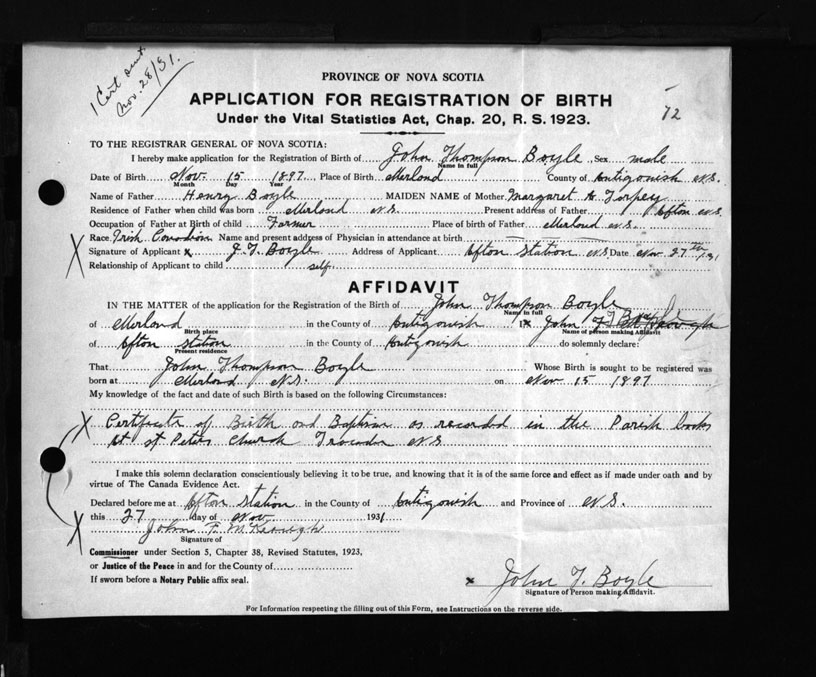 1 Cert sent
Nov. 28/31.
PROVINCE OF NOVA SCOTIA
APPLICATION FOR REGISTRATION OF BIRTH
72
Under the Vital Statistics Act, Chap. 20, R. S. 1923.
TO THE REGISTRAR GENERAL OF NOVA SCOTIA:
I hereby make application for the Registration of Birth of John Thompson Boyle Sex male
Name in full
Date of Birth Nov. 15 1897 Place of Birth Merland County of Antigonish N.S.
Month Day Year
Name of Father Henry Boyle MAIDEN NAME of Mother Margaret A Torpey
Residence of Father when child was born Merland N.S. Present address of Father Afton N.S.
Occupation of Father at Birth of child Farmer Place of birth of Father Merland N.S.
Race Irish Canadian Name and present address of Physician in attendance at birth
X Signature of Applicant x J. T. Boyle Address of Applicant Afton Station N.S Date Nov 27th /31
Relationship of Applicant to child self
AFFIDAVIT
IN THE MATTER of the application for the Registration of the Birth of John Thompson Boyle
Name in full
of Merland in the County of Antigonish I x John T Boyle
Birth place Name of person making Affidavit
of Afton Station in the County of Antigonish do solemnly declare:
Present residence
That John Thompson Boyle Whose Birth is sought to be registered was
born at Merland N.S. on Nov 15 1897
My knowledge of the fact and date of such Birth is based on the following Circumstances:
X Certificate of Birth and Baptism as recorded in the Parish books
at St Peters Church Tracadie N.S
I make this solemn declaration conscientiously believing it to be true, and knowing that it is of the same force and effect as if made under oath and by
virtue of The Canada Evidence Act.
Declared before me at Afton Station in the County of Antigonish and Province of N.S.
X this 27 day of Nov 1931
John F. McKeough
Signature of
Commissioner under Section 5, Chapter 38, Revised Statutes, 1923,
or Justice of the Peace in and for the County of
If sworn before a Notary Public affix seal.
x John T. Boyle
Signature of Person making Affidavit.
For Information respecting the filling out of this Form, see Instructions on the reverse side.